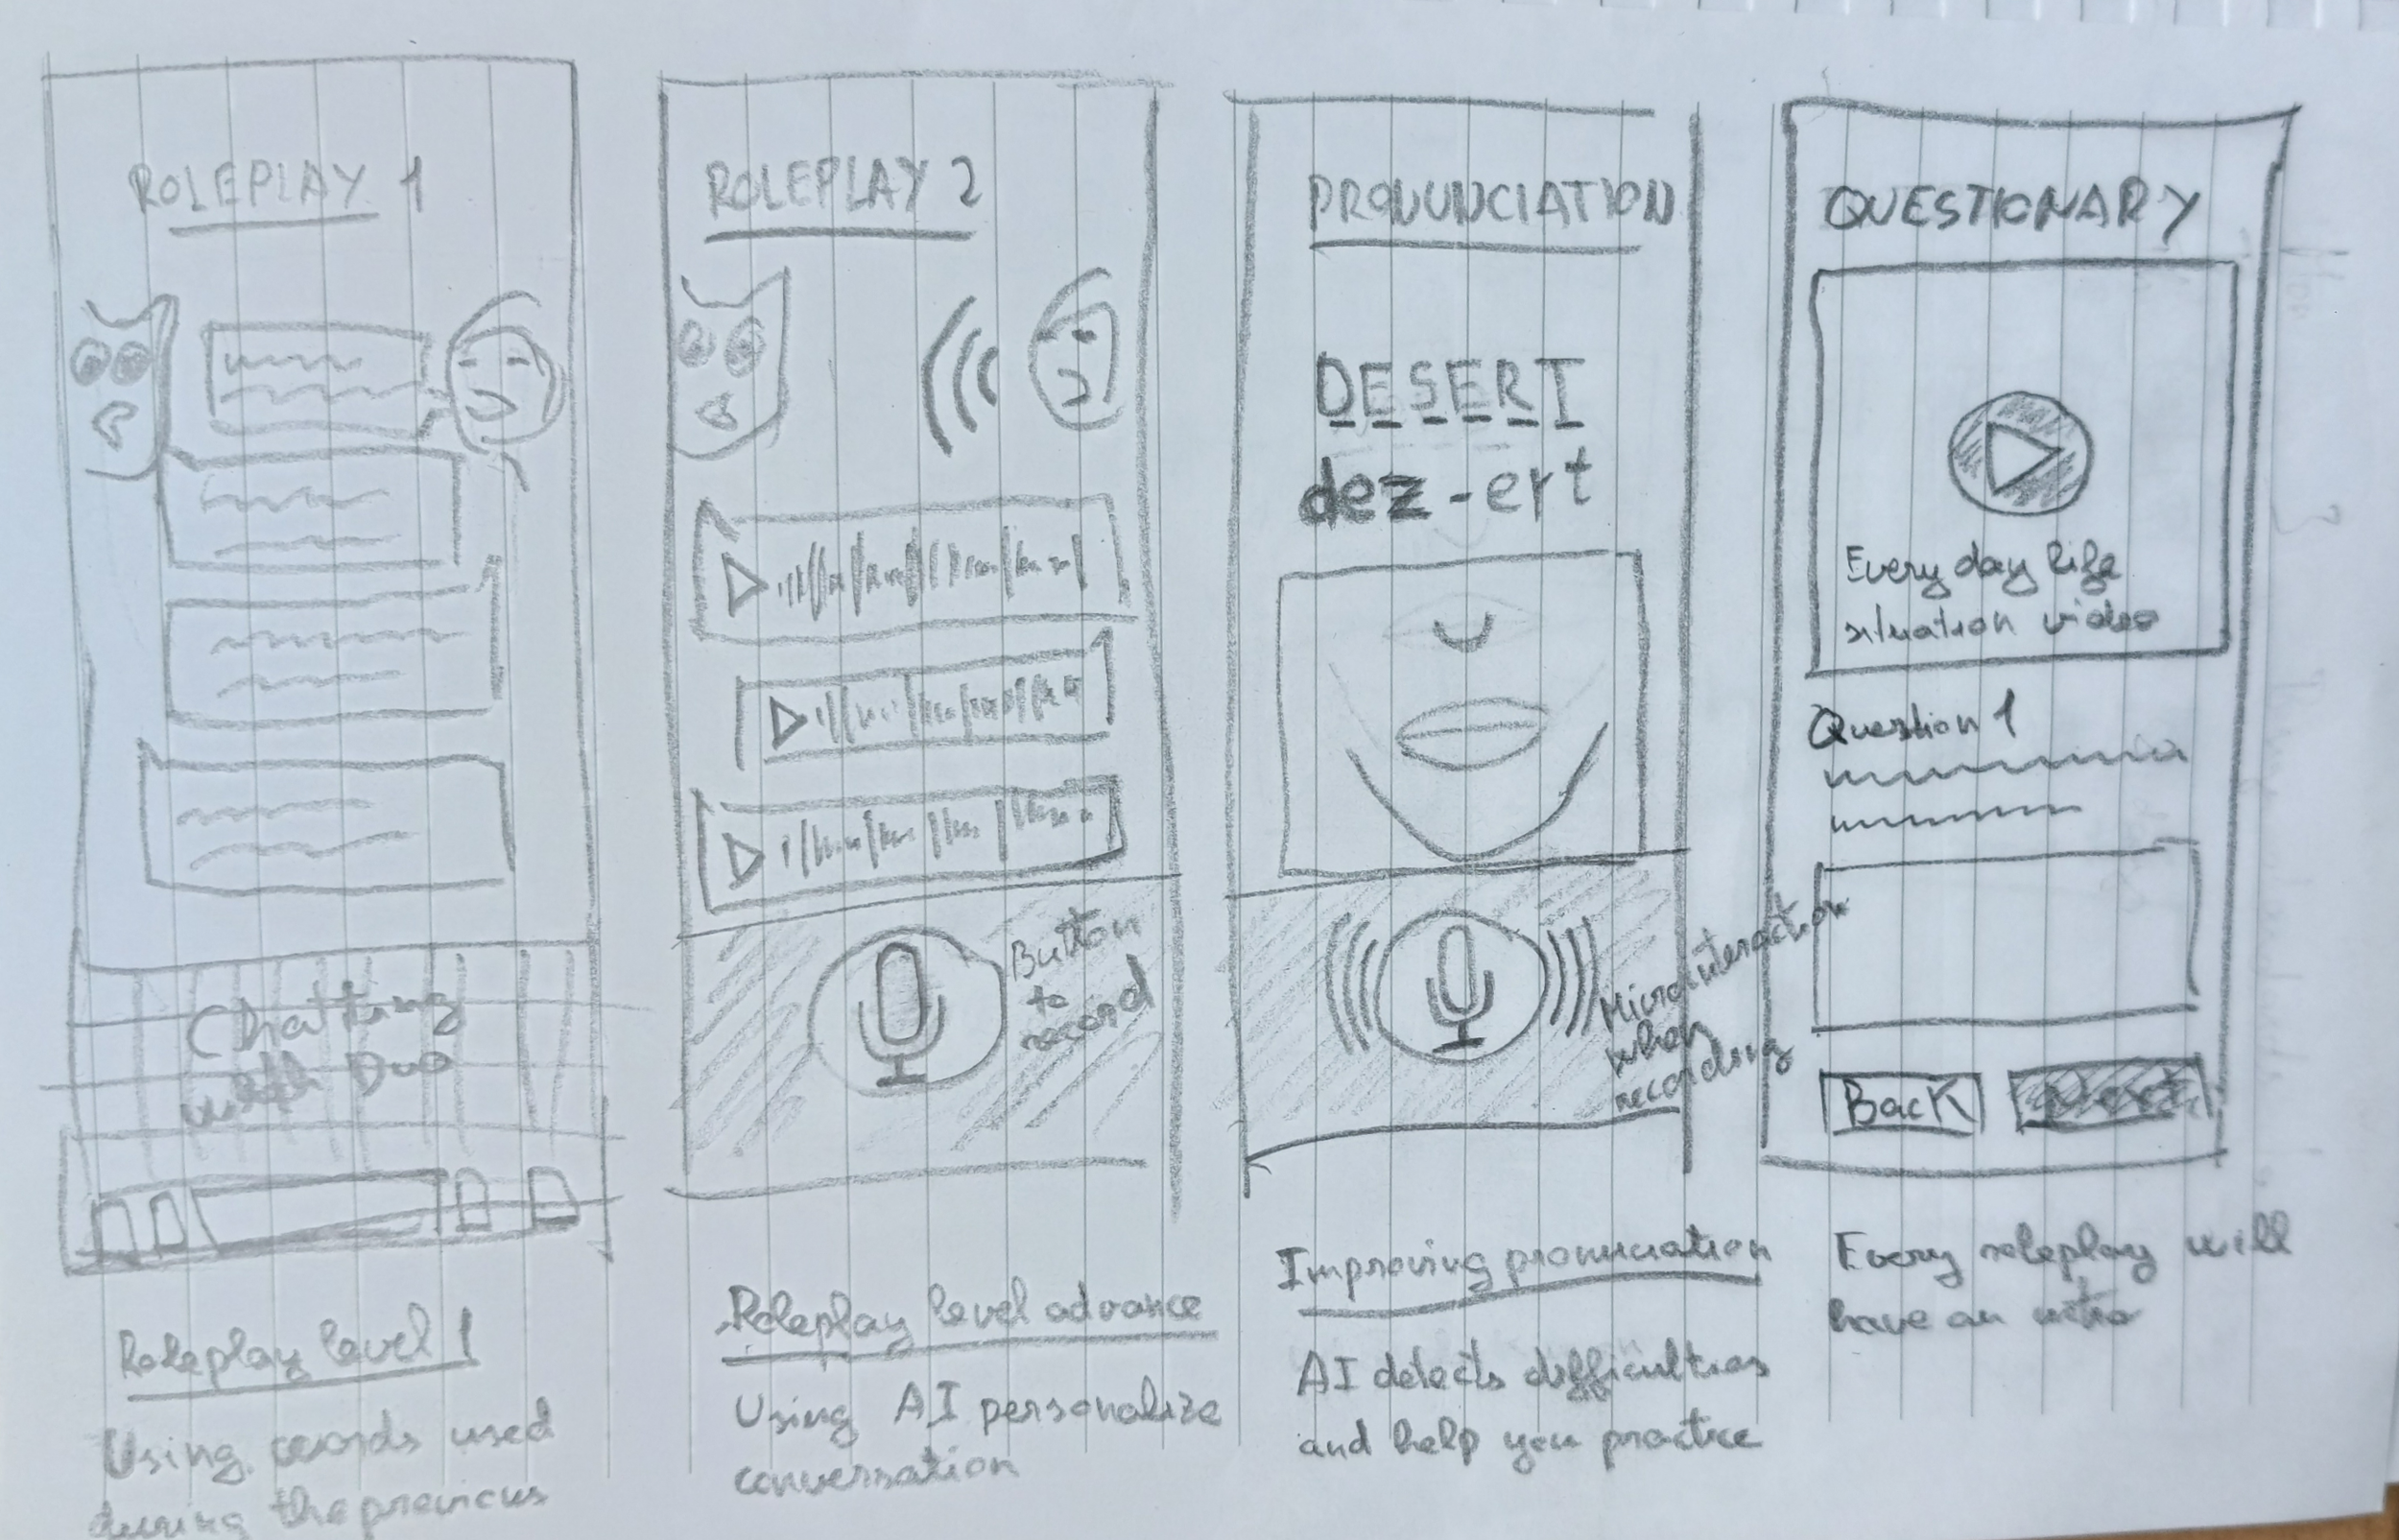 ROLEPLAY 1
Chatting
with Duo
Roleplay level 1
Using words used
during the previous
ROLEPLAY 2
Button
to
record
Roleplay level advance
Using AI personalize
conversation
PRONUNCIATION
DESERT
dez-ert
Microinteraction
when
recording
Improving pronuciation
AI detects difficulties
and help you practice
QUESTIONARY
Every day life
situation video
Question 1
Back
Next
Every roleplay will
have an